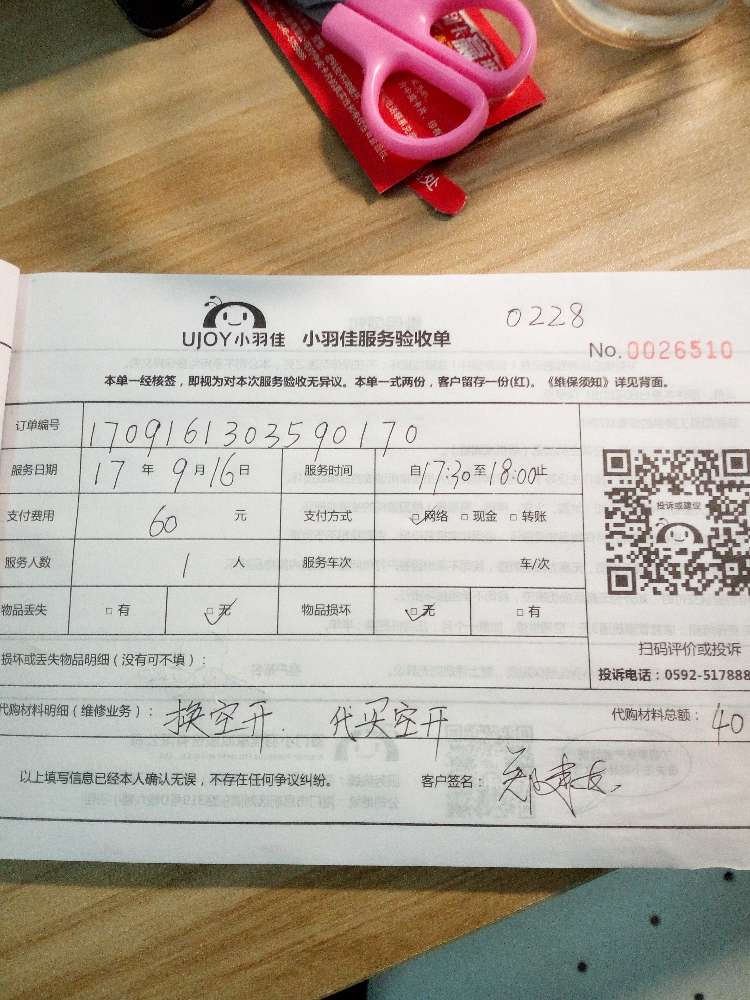 0228
UJOY小羽佳 小羽佳服务验收单
No. 0026510
本单一经核签，即视为对本次服务验收无异议。本单一式两份，客户留存一份(红)。《维保须知》详见背面。
订单编号 1709161303590170
服务日期 17 年 9 月 16 日 服务时间 自 17:30 至 18:00 止
支付费用 60 元 支付方式 网络 现金 转账
投诉或建议
服务人数 1 人 服务车次 车/次
物品丢失 有 无 物品损坏 无 有
扫码评价或投诉
损坏或丢失物品明细（没有可不填）：
投诉电话：0592-517888
代购材料明细（维修业务）： 换空开. 代买空开 代购材料总额： 40
以上填写信息已经本人确认无误，不存在任何争议纠纷。 客户签名：